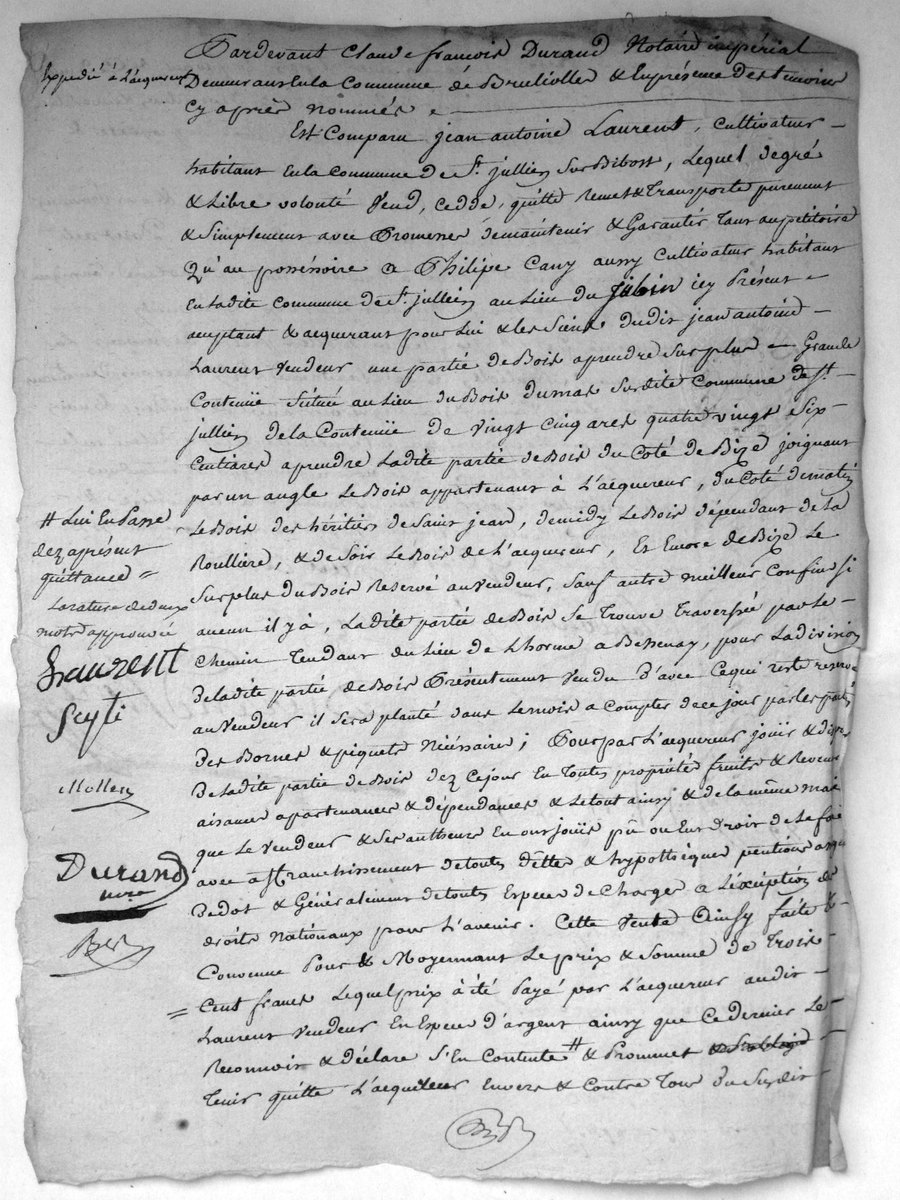 Expedié à L'acquereur
Pardevant Claude françois Durand Notaire impérial
Demeurant En la Commune de Brullioles & En présence Des temoins
Cy après nommés
Est Comparu jean antoine Laurent, Cultivateur
habitant En la Commune de St. jullien Sur Bibost, Lequel de gré
& Libre volonté Vend, cedde, quitte Remet & Transporte purement
& Simplement avec Promesse de maintenir & Garantir Tant au petitoire
Qu'au possessoire a Philipe Cany aussy Cultivateur habitant
En Ladite Commune de St. jullien au Lieu du Jubin icy Présent
acceptant & acquerant pour Lui & les Siens dudit jean antoine
Laurent Vendeur une partie de Bois a prendre Sur plus Grande
Contenüe Située au Lieu du Bois Dumas Sur dite Commune de St.
jullien de la Contenüe de vingt Cinq ares quatre vingt Six
Centiares a prendre Ladite partie de Bois du Coté de Bize joignant
par un angle Le Bois appartenant à L'acquereur, du Coté de matin
Le Bois des héritiers de Saint jean, de midy Le Bois dépendant de La
Roullière, & de Soir Le Bois de L'acquereur, Et Encore de Bize Le
Surplus du Bois Reservé au Vendeur, Sauf autre meilleur Confins Si
aucun il y à, Ladite partie de Bois Se Trouve Traversée par Le
Chemin Tendant du Lieu de Lhorme a Bessenay, pour La division
De Ladite partie de Bois Présentement Vendu D'avec Ce qui reste reservé
au Vendeur il Sera planté dans Le mois a Compter de ce jour par les parties
Des Bornes & piquets Nécessaires; Pour par L'acquereur jouir & disposer
De Ladite partie de Bois dez Ce jour En Toutes propriété fruits & Revenus
aisances apartenances & dépendances & Le tout ainsy & de la même manière
que Le Vendeur & Ses autheurs En ont jouïs pû ou Eut Droit de Le faire
avec affranchissement de toutes dettes & hypothèques pentions
& Généralement de toutes Espece de Charges a L'éxception des
droits Nationaux pour L'avenir. Cette Vente Ainsy faite &
Convenue Pour & Moyennant Le prix & Somme de Trois
Cent francs Lequel prix à été Payé par L'acquereur audit
Laurent Vendeur En Espece D'argent ainsy que Ce dernier Le
Reconnoit & Déclare S'En Contente # & Promet
Tenir quitte L'acquereur Envers & Contre Tous Du Susdit
# Lui En Passe
dez apresent
quittance =
La rature de deux
mots approuvée
Laurent
Durand
nore